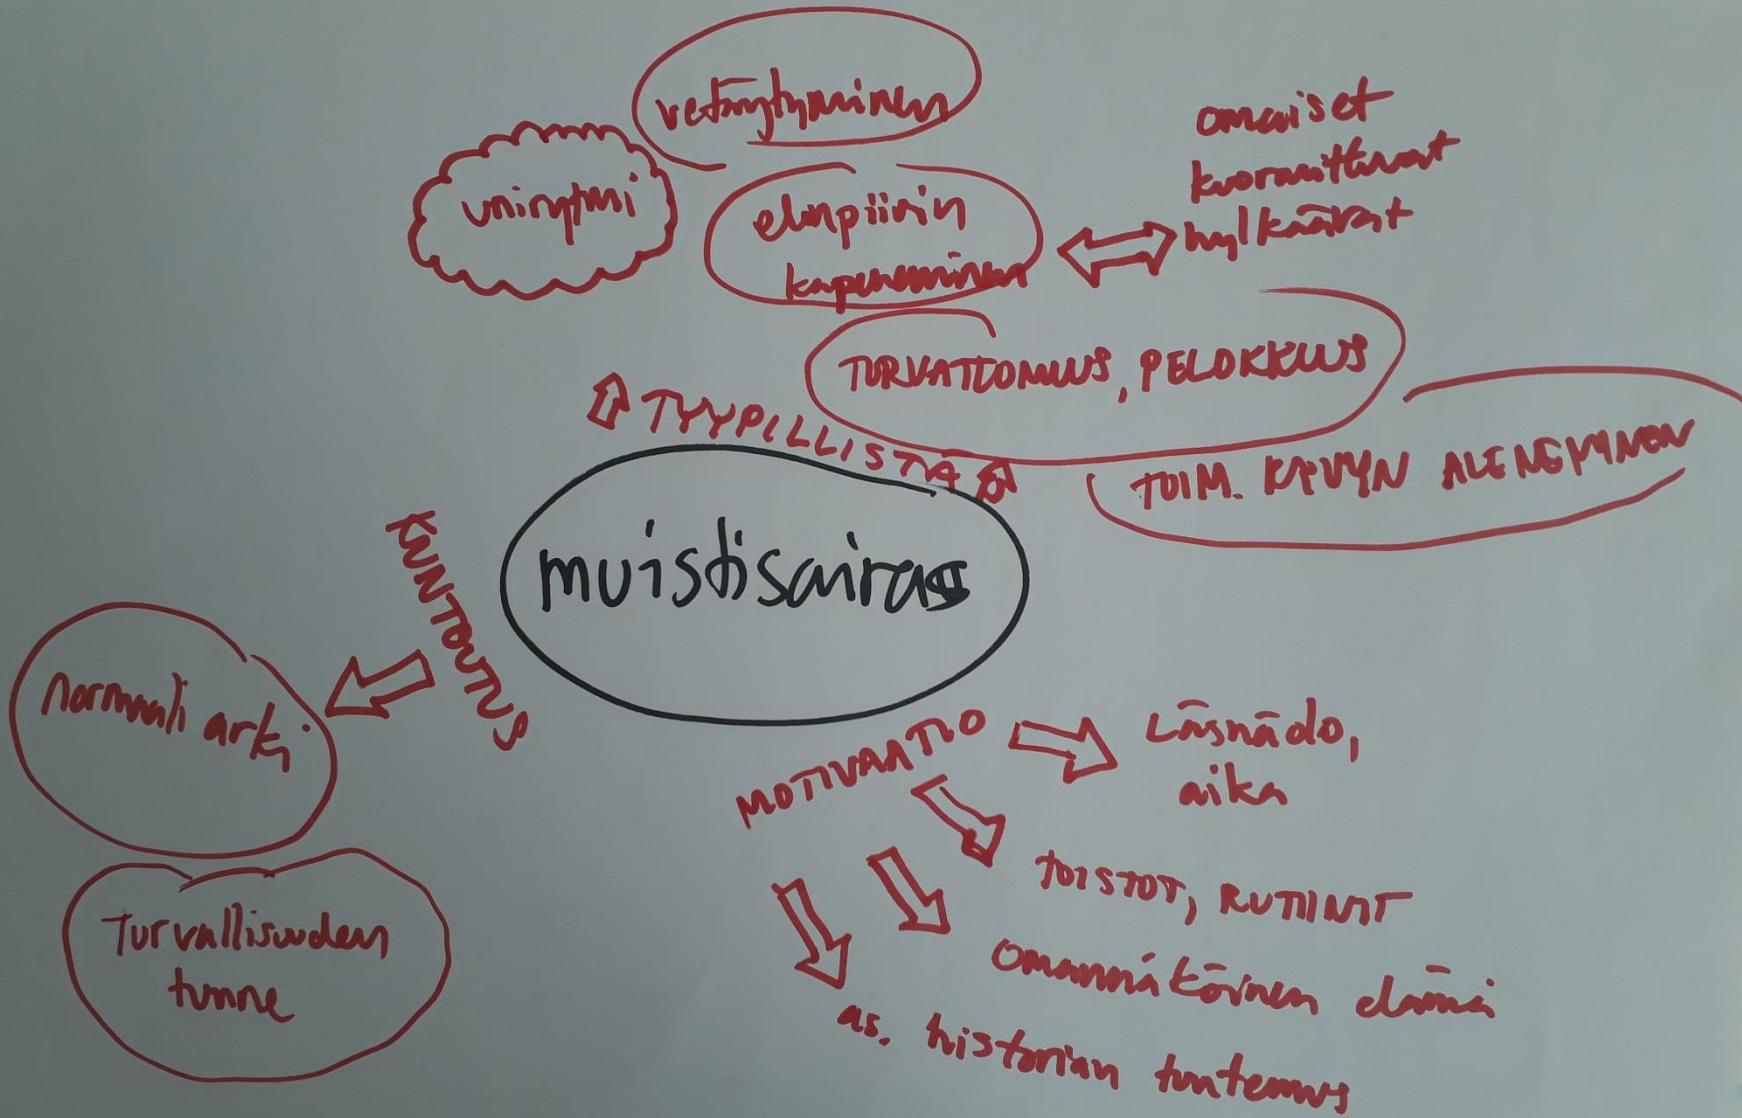 vetäytyminen
unirytmi
elinpiirin
kapeneminen
omaiset
kuormittuvat
hylkäävät
TURVATTOMUUS, PELOKKUUS
TYYPILLISTÄ
TOIM. KYVYN ALENEMINEN
muistisairas
KUNTOUTUS
normaali arki
Turvallisuuden
tunne
MOTIVAATIO
Läsnäolo,
aika
TOISTOT, RUTIINIT
Omannäköinen elämä
as. historian tuntemus